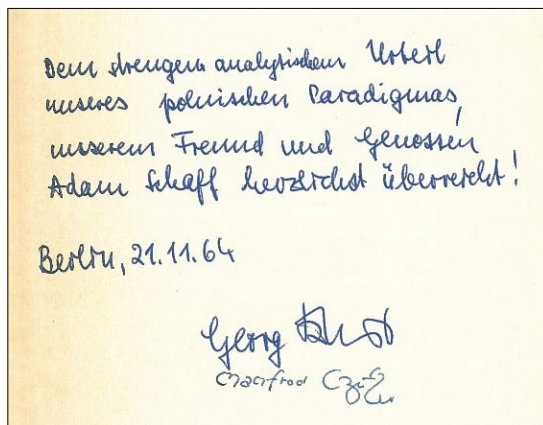 Dem strengen analytischen Urteil
unseres polnischen Paradigmas,
unserem Freund und Genossen
Adam Schaff herzlichst überreicht!
Berlin, 21.11.64
Georg
Manfred